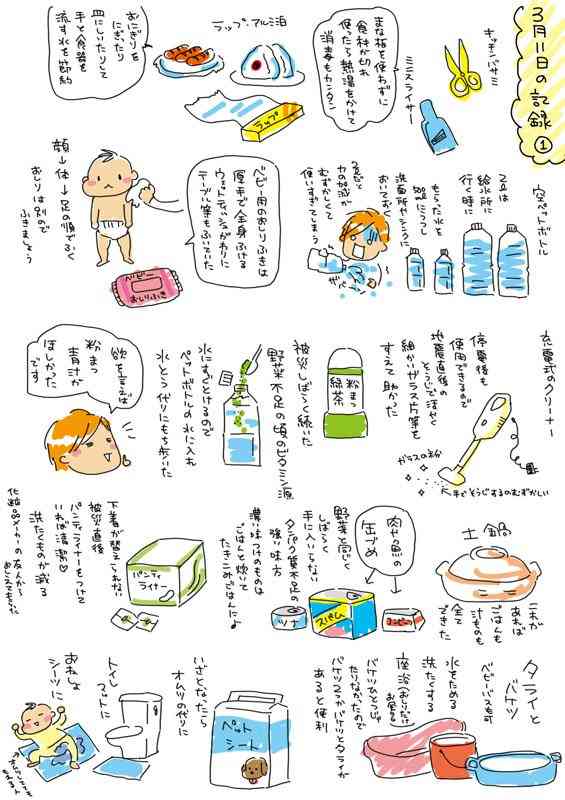 3月11日の記録①
キッチンバサミ
ミニスライサー
まな板を使わずに
食材が切れ
使ったら熱湯をかけて
消毒もカンタン
ラップ・アルミ泊
ラップ
おにぎりを
にぎったり
皿にしいたりして
手と食器を
流す水を節約
空ペットボトル
2Lは
給水所に
行く時に
もらった水を
500にうつし
洗面所やシンクに
おいておく
2Lだと
力の加減が
むずかしくて
使いすぎてしまう
ベビー用のおしりふきは
厚手で全身ふける
ウェットティッシュがわりに
テーブル等もふいていた
ベビー
おしりふき
顔→体→足の順でふく
おしりは別ので
ふきましょう
充電式のクリーナー
停電後も
使用できるので
地震直後の
そうじで活やく
細かいガラス片等を
すえて助かった
ガラスの粉
粉まつ
緑茶
被災しばらく続いた
野菜不足の頃のビタミン源
水にすぐとけるので
ペットボトルの水に入れ
水とう代りにもち歩いた
欲を言えば
粉まつ
青汁が
ほしかった
です
土鍋
これが
あれば
ごはんも
汁ものも
全て
できた
肉や魚の
缶づめ
野菜と同じく
しばらく
手に入らない
タンパク質不足の
強い味方
濃い味つけのものは
ごはんと炊いて
たきこみごはんに♪
ツナ
スパム
パンティ
ライナー
下着が替えられない
被災直後
パンティライナーをつけて
いれば清潔♡
洗たくものが減る
化粧品メーカーの友人から
おしえてもらった
タライと
バケツ
ベビーバスも可
水をためる
洗たくする
座浴(おしりだけ
お風呂)
バケツひとつじゃ
たりなかったので
バケツ2つかバケツとタライが
あると便利
ペット
シート
いざとなったら
オムツの代りに
トイレ
マットに
おねしょ
シーツに